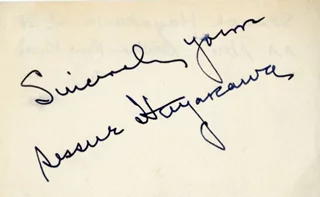 Sincerely yours
Sessue Hayakawa